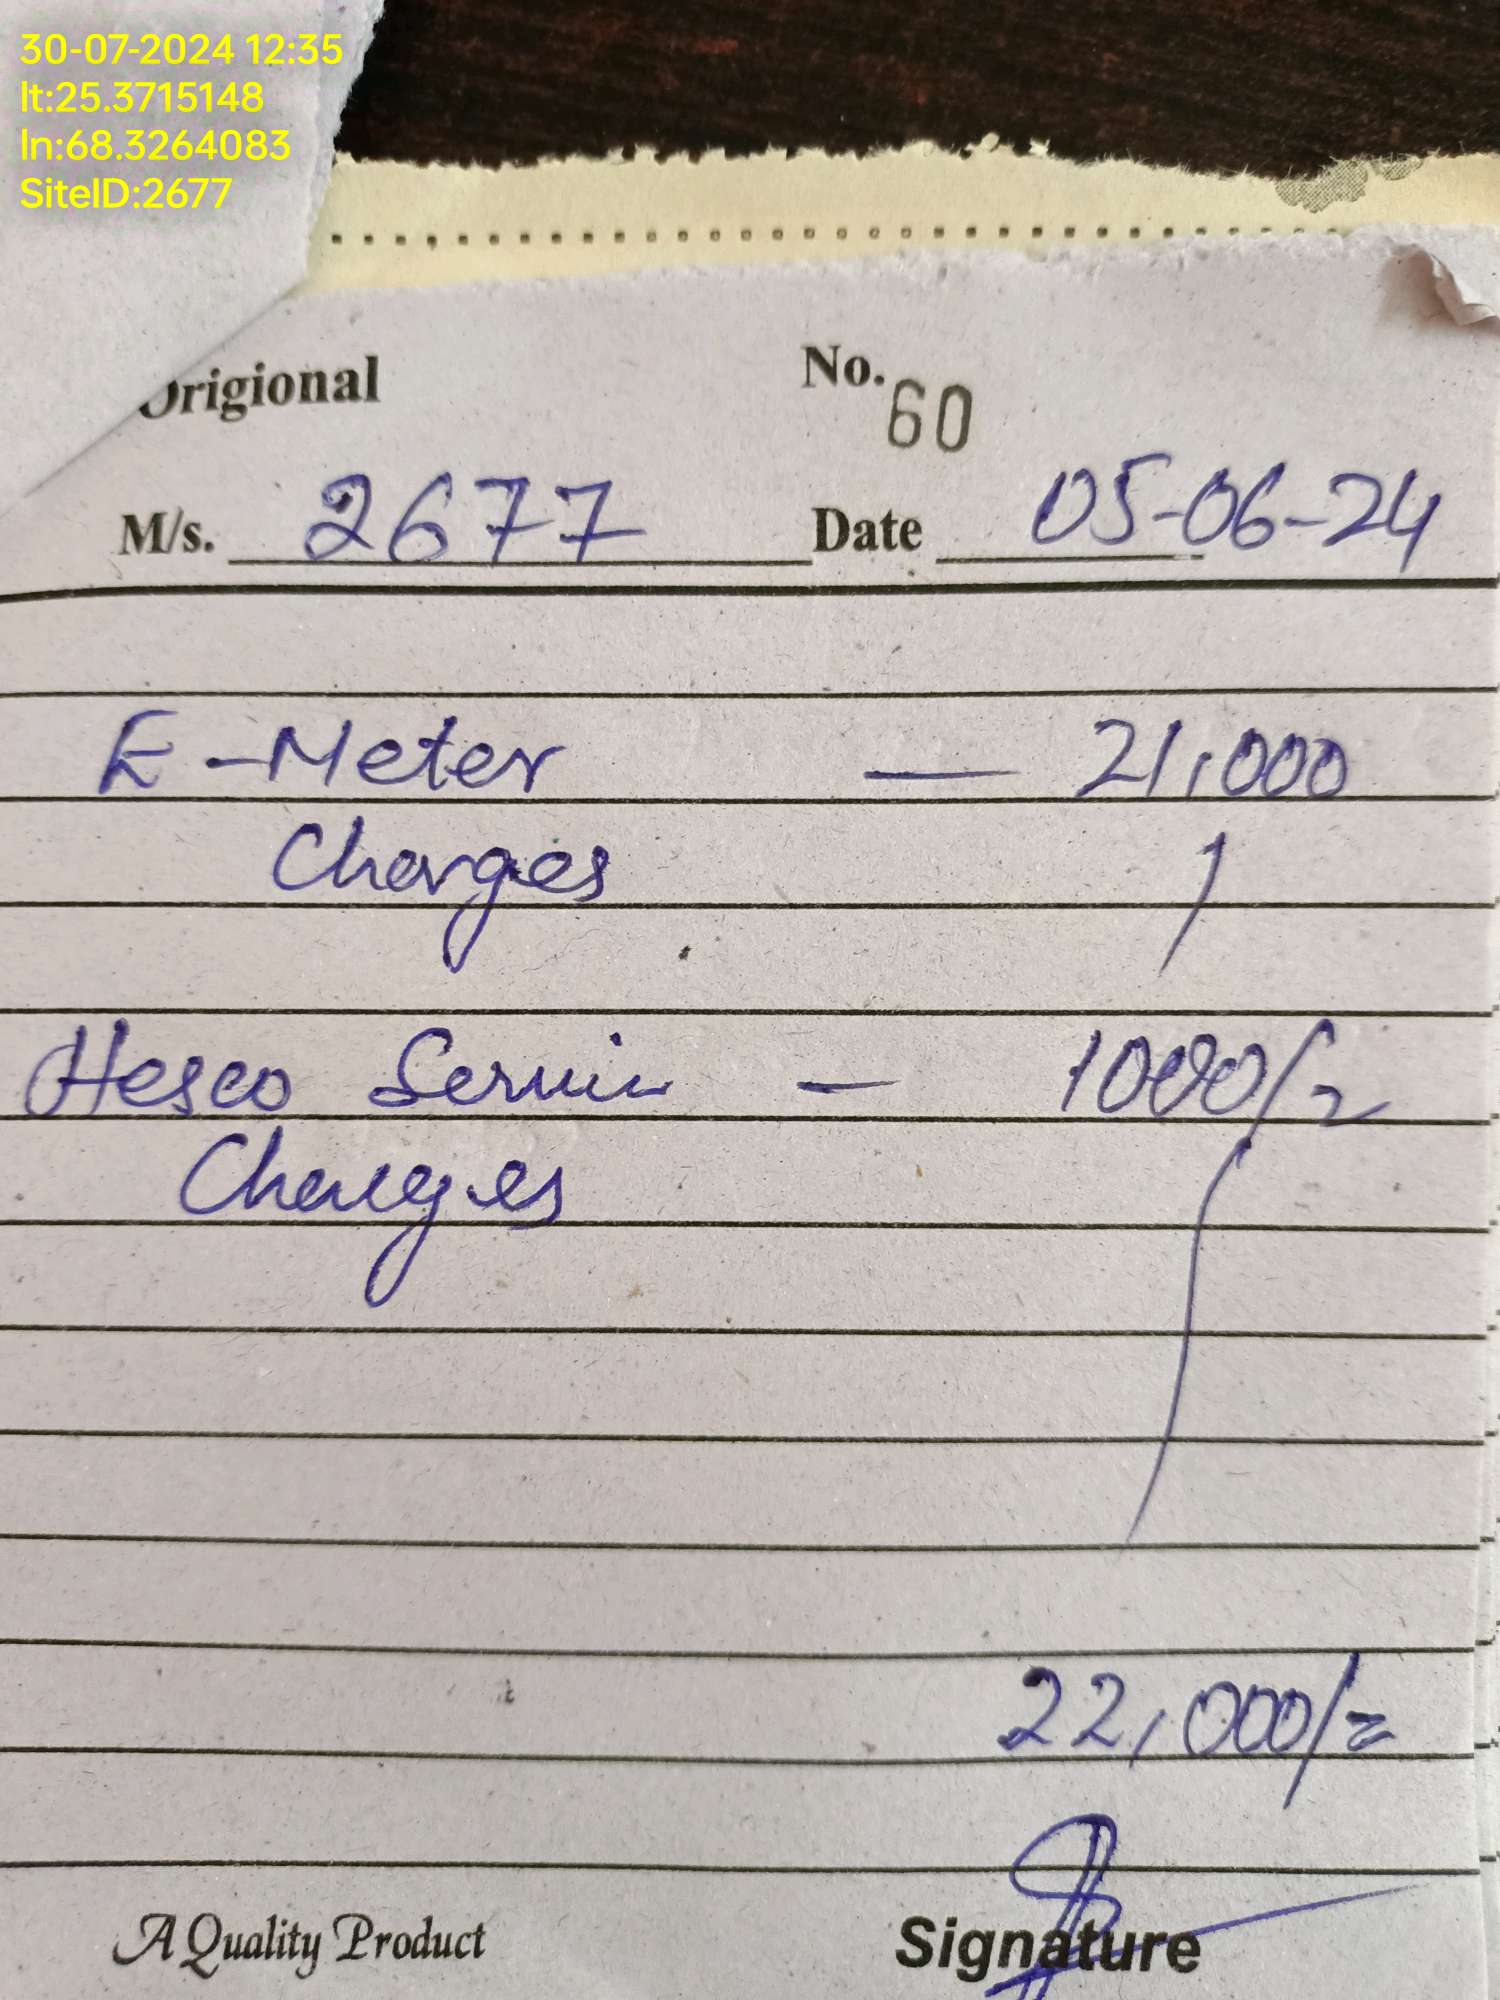 30-07-2024 12:35
lt:25.3715148
ln:68.3264083
SiteID:2677
Origional No. 60
M/s. 2677 Date 05-06-24
E-Meter — 21,000
Charges
Hesco Servic — 1000/=
Charges
22,000/=
A Quality Product Signature